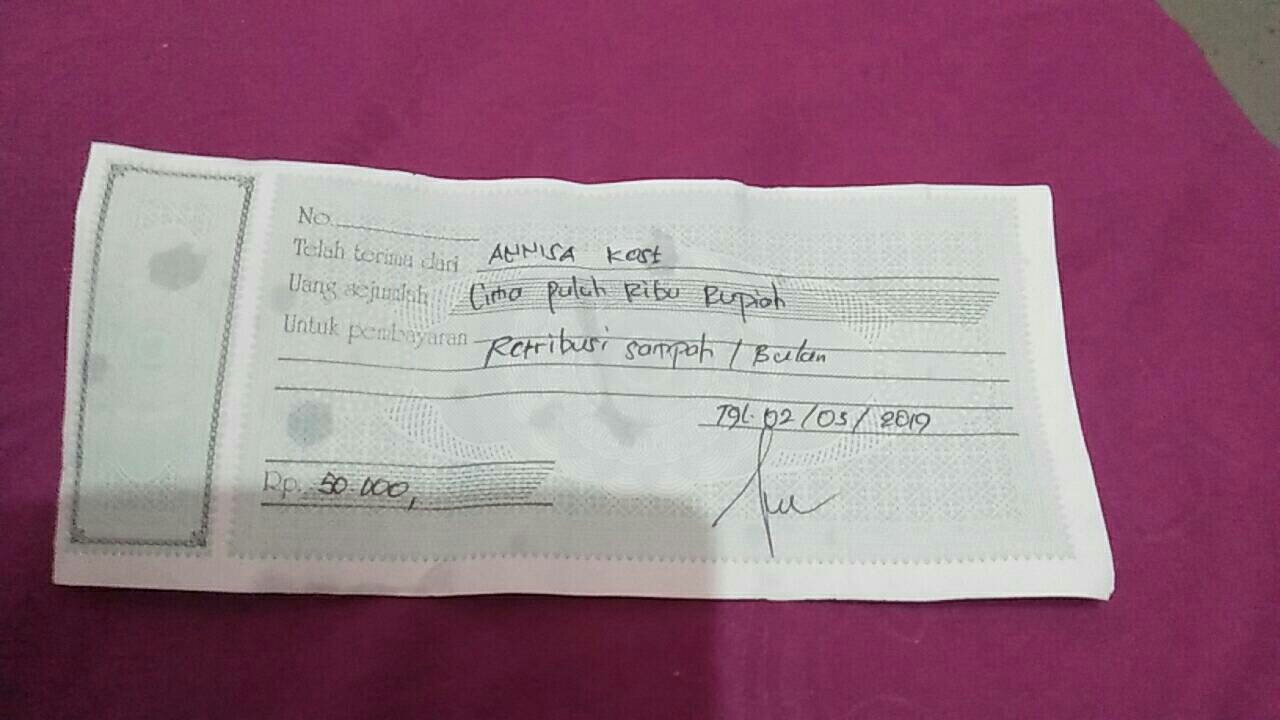 No.
Telah terima dari ANNISA Kost
Uang sejumlah Lima puluh Ribu Rupiah
Untuk pembayaran Retribusi sampah / Bulan
Tgl. 02/03/2019
Rp. 50.000,